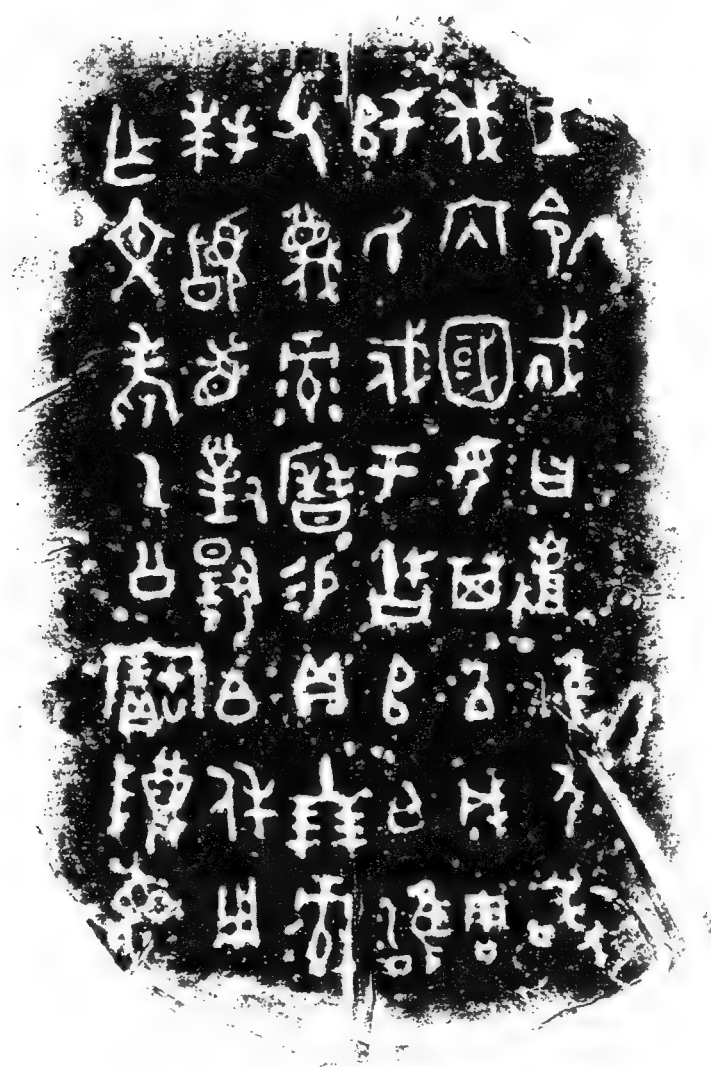 王令𢦚曰𠭯淮尸敢
伐內國女其以成周
師氏戍于古𠂤白雝
父蔑录曆易貝十朋录
拜𩒨首對揚白休用
乍文考乙公寶尊彝